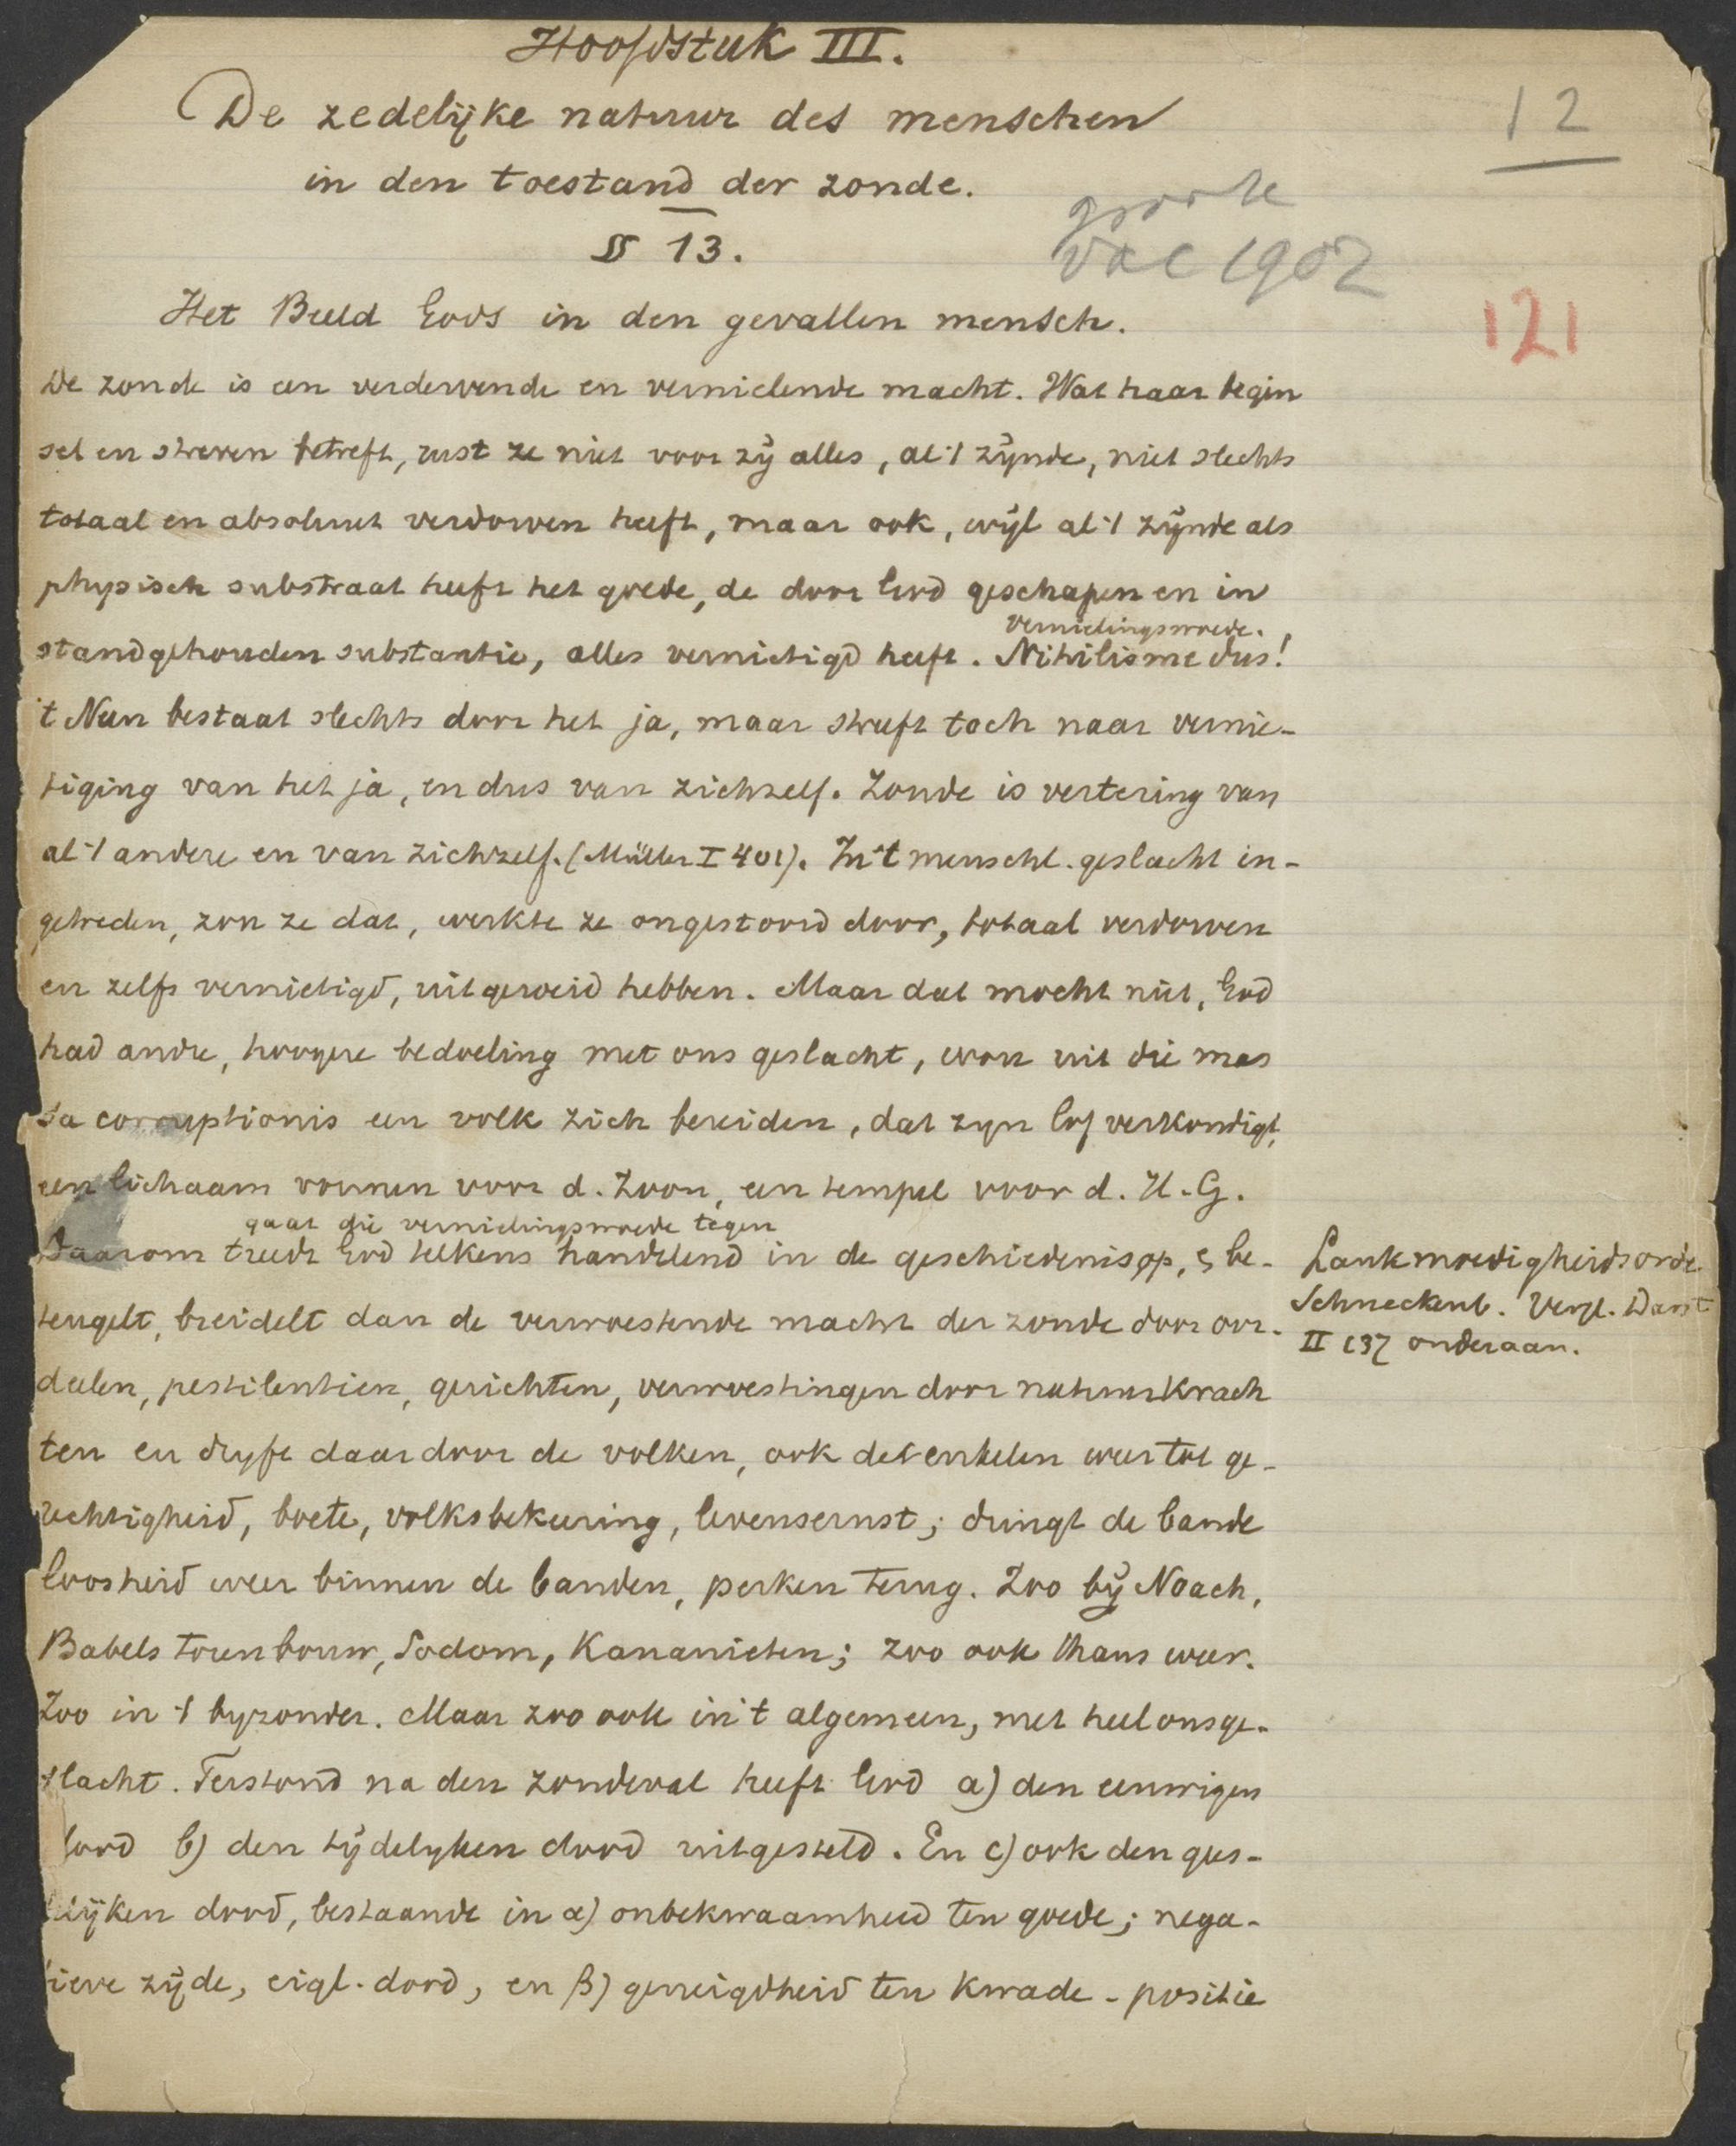 Hoofdstuk III.
12
De zedelijke natuur des menschen
in den toestand der zonde.
groote
vac 1902
§ 13.
121
Het Beeld Gods in den gevallen mensch.
De zonde is een verdervende en vernielende macht. Wat haar begin
sel en streven betreft, rust ze niet voor zij alles, al 't zijnde, niet slechts
totaal en absoluut verdorven heeft, maar ook, wijl al 't zijnde als
physisch substraat heeft het goede, de door God geschapen en in
vernielingswoede.
standgehouden substantie, alles vernietigd heeft. Nihilisme dus!
't Neen bestaat slechts door het ja, maar streeft toch naar vernie-
tiging van het ja, en dus van zichzelf. Zonde is vertering van
al 't andere en van zichzelf. (Müller I 401). In 't menschl. geslacht in-
getreden, zou ze dat, werkte ze ongestoord door, totaal verdorven
en zelfs vernietigd, uitgeroeid hebben. Maar dat mocht niet, God
had andre, hoogere bedoeling met ons geslacht, wou uit die mas
sa corruptionis een volk zich bereiden, dat zijn lof verkondigt,
een lichaam vormen voor d. Zoon, een tempel voor d. H. G.
gaat die vernielingswoede tegen
Daarom treedt God telkens handelend in de geschiedenis op, & be-
teugelt, breidelt dan de verwoestende macht der zonde door oor-
Lankmoedigheidsorde
Schneckenb. Vergl. Darst
II 137 onderaan.
deelen, pestilentien, gerichten, verwoestingen door natuurkrach
ten en dryft daardoor de volken, ook de enkelen weer tot ge-
rechtigheid, boete, volksbekeering, levensernst; dringt de bande
loosheid weer binnen de banden, perken terug. Zoo bij Noach,
Babels torenbouw, Sodom, Kananieten; zoo ook thans weer.
Zoo in 't byzonder. Maar zoo ook in 't algemeen, met heel ons ge-
slacht. Terstond na den zondeval heeft God a) den eeuwigen
dood b) den tijdelyken dood uitgesteld. En c) ook den gees-
telijken dood, bestaande in α) onbekwaamheid ten goede; nega-
tieve zijde, eigl. dood, en β) geneigdheid ten kwade - positie